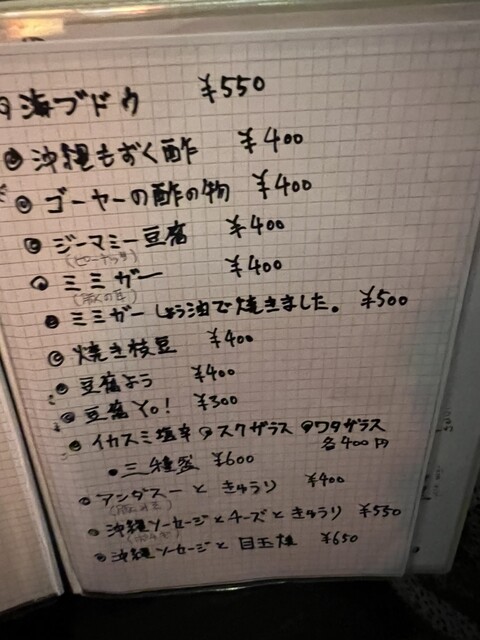 海ブドウ ¥550
沖縄もずく酢 ¥400
ゴーヤーの酢の物 ¥400
ジーマミー豆腐 ¥400
(ピーナッツ)
ミミガー ¥400
(豚の耳)
ミミガーしょう油で焼きました。 ¥500
焼き枝豆 ¥400
豆腐よう ¥400
豆腐Yo! ¥300
イカスミ塩辛 スクガラス ワタガラス
各400円
三種盛 ¥600
アンダスーときゅうり ¥400
沖縄ソーセージとチーズときゅうり ¥550
沖縄ソーセージと目玉焼 ¥650